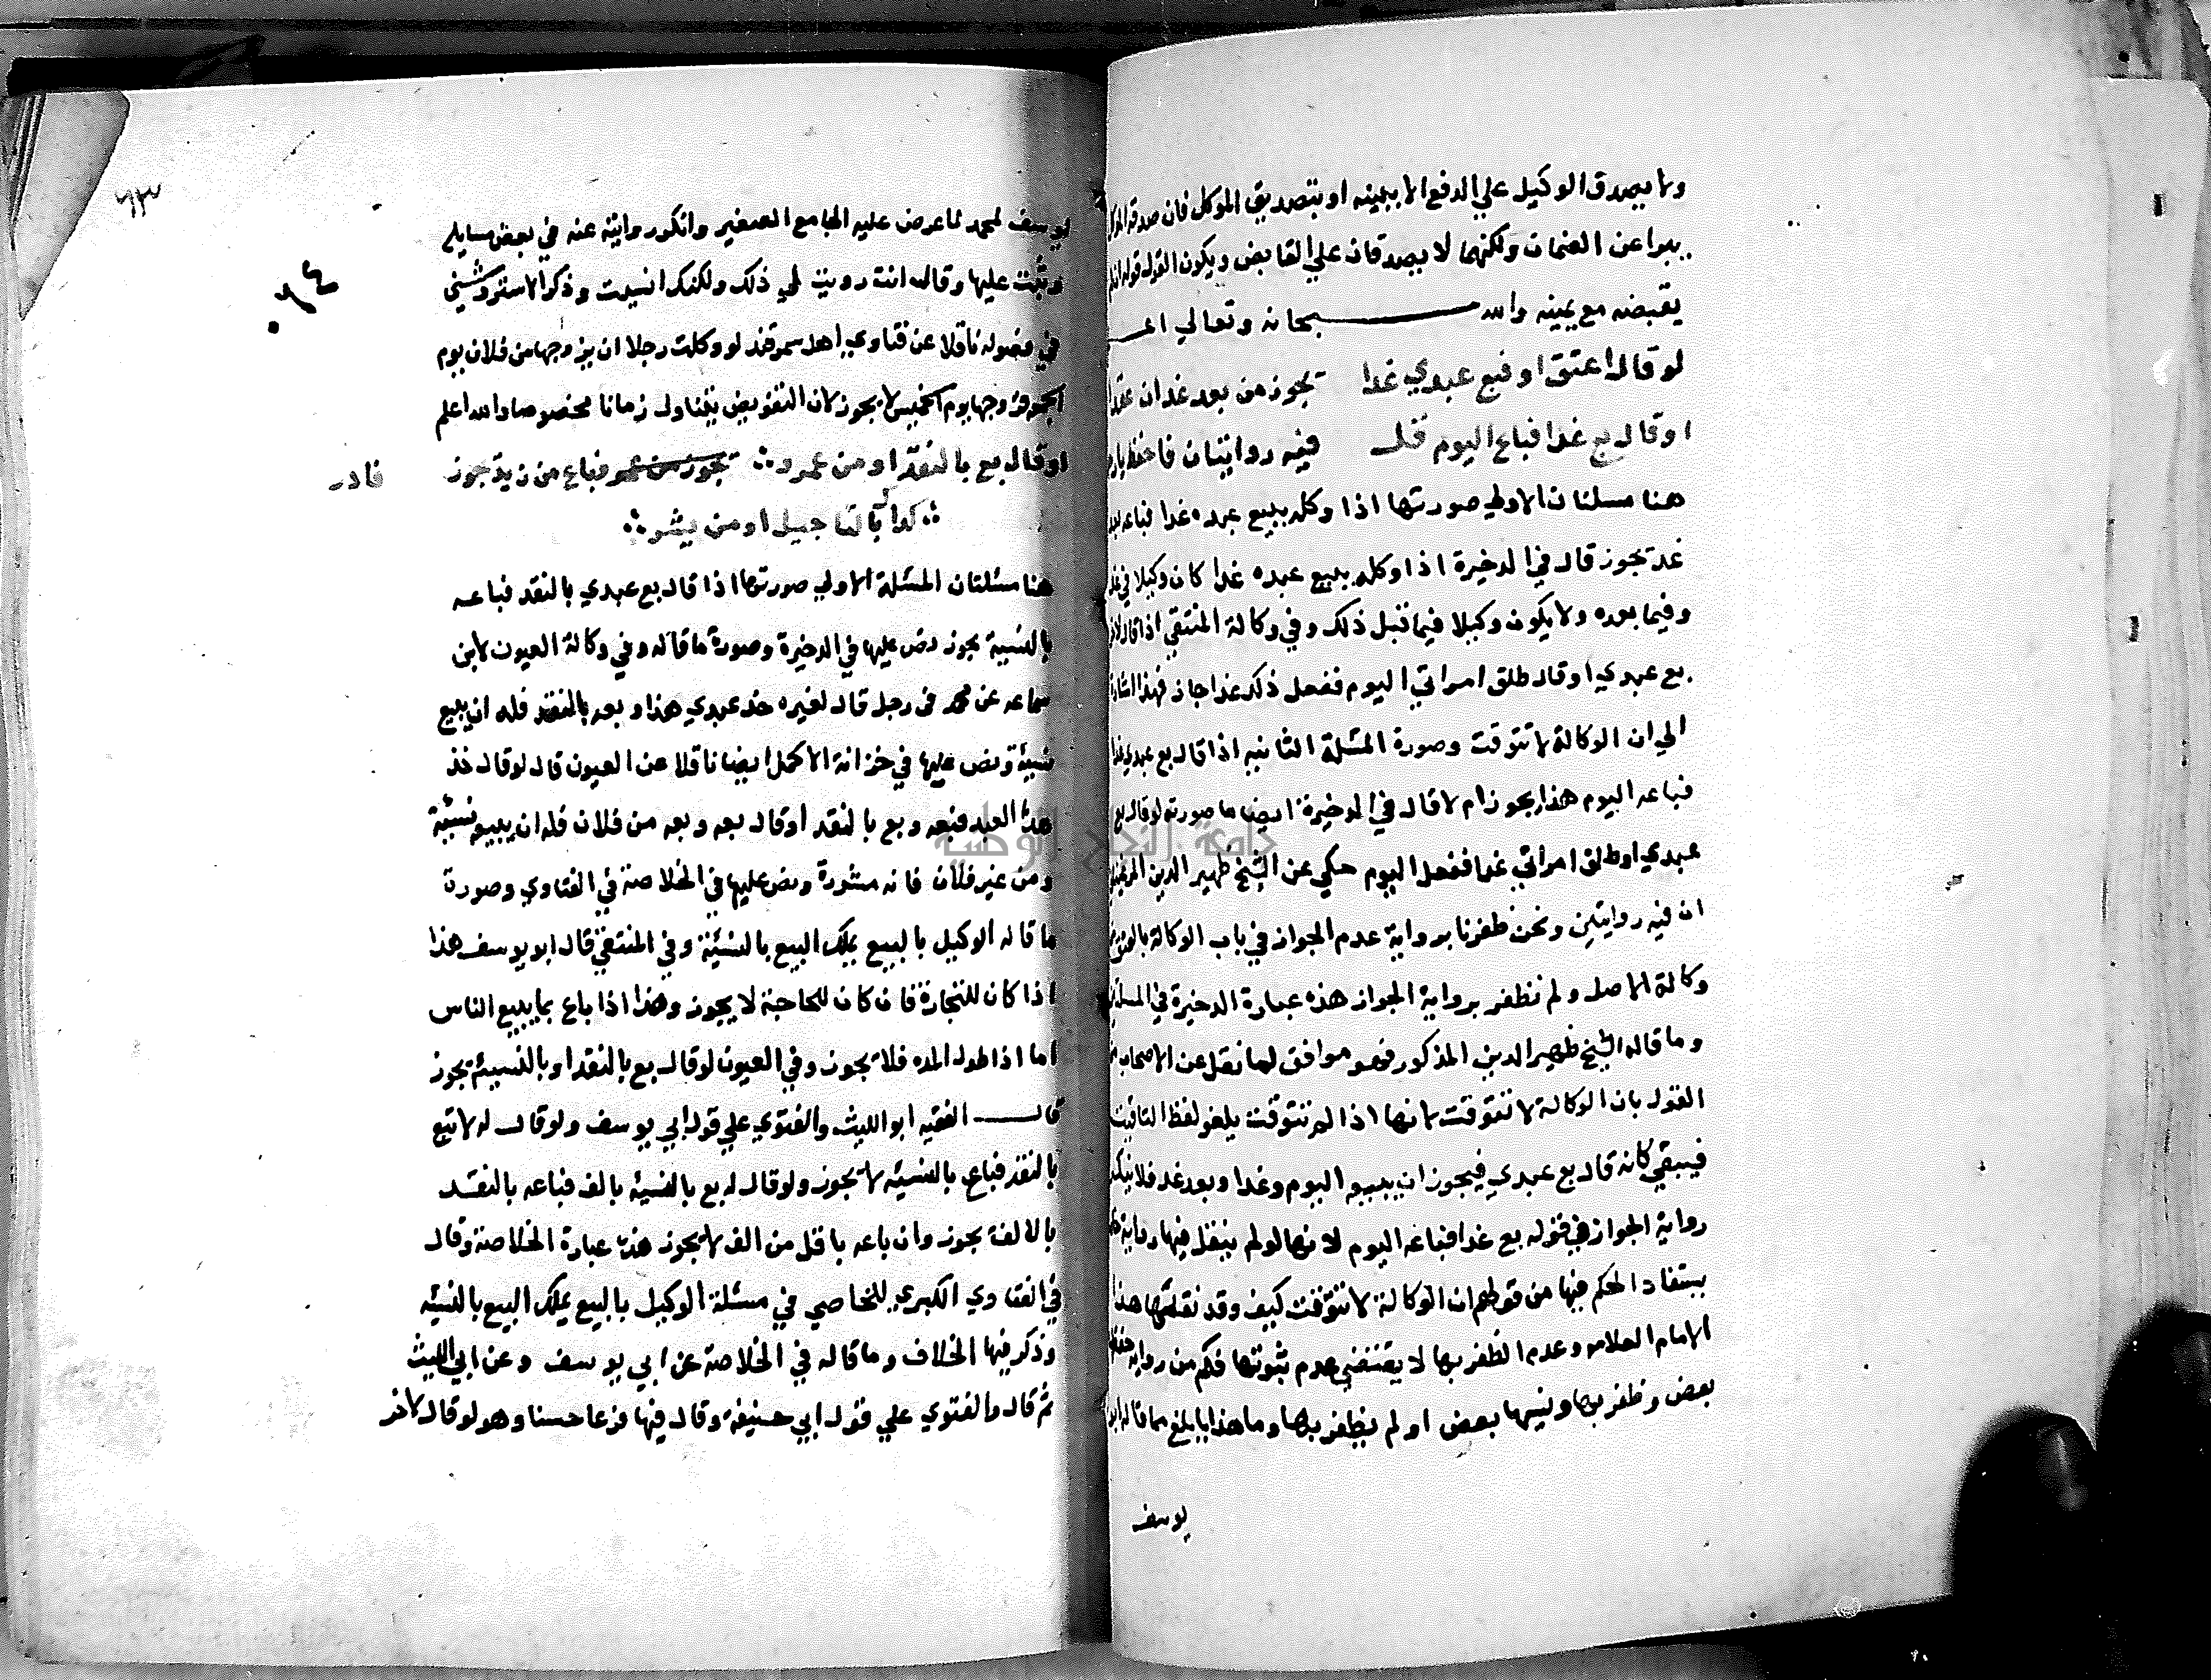 ولا يصدق الوكيل علي الدفع الا بيمينه او بتصديق الموكل فان صدقه الموكل
يبرا عن الضمان ولكنهما لا يصدقان علي القابض ويكون القول قوله انه لم
يقبضه مع يمينه والله سبحانه وتعالي اعلم
لو قال اعتق او فبع عبدي غدا تجوز من بعد غد ان عقدا
او قال بع غدا فباع اليوم قل فيه روايتان فاحفظ يا
هنا مسلتان الاولي صورتها اذا وكله ببيع عبده غدا فباعه بعد
غد تجوز قال في الدخيرة اذا وكله ببيع عبده غدا كان وكيلا في غد
وفيما بعده ولا يكون وكيلا فيما قبل ذلك وفي وكالة المنتقي اذا قال لاخر
بع عبدي او قال طلق امراتي اليوم ففعل ذلك غدا جاز فهذا اشارة
الي ان الوكالة لا تتوقت وصورة المسئلة الثانيه اذا قال بع عبدي غدا
فباعه اليوم هذا يجوز ام لا قال في الدخيرة ايضا ما صورته لو قال بع
عبدي او طلق امراتي غدا ففعل اليوم حكي عن الشيخ ظهير الدين المرغيناني
ان فيه روايتين ونحن ظفرنا برواية عدم الجواز في باب الوكالة بالعتق
وكالة الاصل ولم نظفر برواية الجواز هذه عبارة الدخيرة في المسلتين
وما قاله الشيخ ظهير الدين المذكور فهو موافق لما نقل عن الاصحاب
القول بان الوكالة لا تتوقت لانها اذا لم تتوقت يلغو لفظ التاقيت
فيبقي كانه قال بع عبدي فيجوز ان يبيعه اليوم وغدا وبعد غد فلا ينكر
رواية الجواز في قوله بع غدا فباعه اليوم لانها لو لم ينقل فيها رواية
يستفاد الحكم فيها من قولهم ان الوكالة لا تتوقت كيف وقد نقلها هذا
الامام العلامه وعدم الظفر بها لا يقتضي عدم ثبوتها فكم من رواية حفظها
بعض وظفر بها ونسيها بعض او لم يظفر بها وما هذا بابلغ مما قاله ابو
يوسف
٦٣
٠٦٤
يوسف لمحمد لما عرض عليه الجامع الصغير وانكر روايته عنه في بعض مسايله
وثبت عليها وقال انت رويت لي ذلك ولكنك انسيت وذكر الاستروشني
في فصوله ناقلا عن فتاوي اهل سمرقند لو وكلت رجلا ان يزوجها من فلان يوم
الجمعة فزوجها يوم الخميس لا يجوز لان التفويض يتناول زمانا مخصوصا والله اعلم
او قال بع بالنقد او من عمرو ∴ تجوز من عمر فباع من زيد تجوز
فادر
∴ كدا بالتاجيل او من بشر ∴
هنا مسئلتان المسئلة الاولي صورتها اذا قال بع عبدي بالنقد فباعه
بالنسية يجوز نص عليها في الدخيرة وصورة ما قاله وفي وكالة العيون لابن
سماعه عن محمد في رجل قال لغيره خذ عبدي هذا وبعه بالنقد فله ان يبيع
نسيئة ونص عليها في خزانة الاكمل ايضا ناقلا عن العيون قال لو قال خذ
هذا العبد فبعه وبع بالنقد او قال بعه وبعه من فلان فله ان يبيعه نسيئة
ومن غير فلان فانه مشورة ونص عليها في الخلاصة في الفتاوي وصورة
ما قاله الوكيل بالبيع يملك البيع بالنسيئة وفي المنتقي قال ابو يوسف هذا
اذا كان للتجارة فان كان للحاجة لا يجوز وهذا اذا باع بما يبيع الناس
اما اذا طول المده فلا تجوز وفي العيون لو قال بع بالنقد او بالنسيئة تجوز
قال الفقيه ابو الليث والفتوي علي قول ابي يوسف ولو قال له لا تبع
بالنقد فباع بالنسيئه لا تجوز ولو قال له بع بالنسيئه بالف فباعه بالنقد
بالالف يجوز وان باعه باقل من الف لا يجوز هذه عبارة الخلاصة وقال
في الفتاوي الكبري للخاصي في مسئلة الوكيل بالبيع يملك البيع بالنسيئه
وذكر فيها الخلاف وما قاله في الخلاصة عن ابي يوسف وعن ابي الليث
ثم قال والفتوي علي قول ابي حنيفة وقال فيها فرعا حسنا وهو لو قال لاخر
جامعة النجاح الوطنية